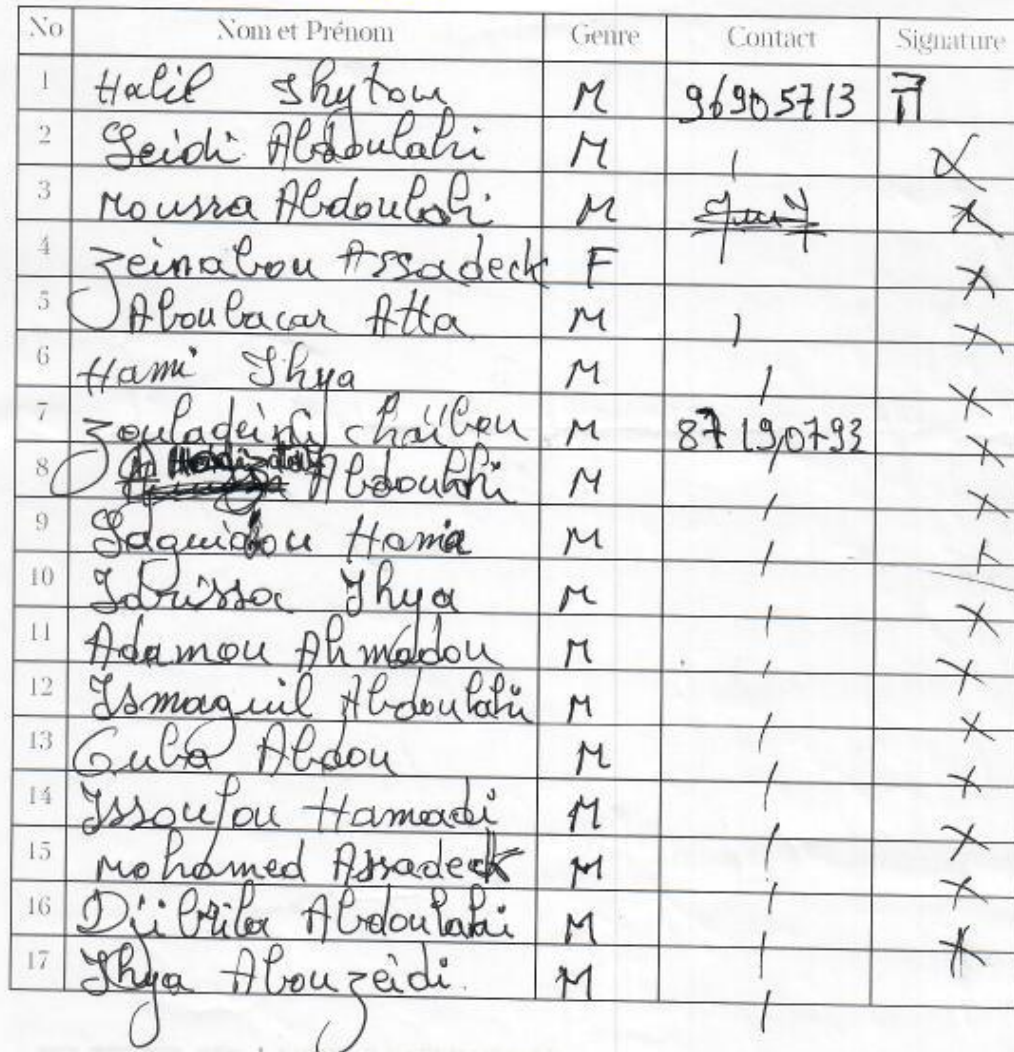 No Nom et Prénom Genre Contact Signature
1 Halil Ihytou M 96905713
2 Seidi Abdoulahi M / X
3 Moussa Abdoulahi M X
4 Zeinabou Assadeck F X
5 Aboubacar Atta M / X
6 Hami Ihya M / X
7 Zouladeini Chaïbou M 87190793 X
8 Abdoulahi M / X
9 Saguidou Hama M / X
10 Idrissa Ihya M / X
11 Adamou Ahmadou M / X
12 Ismaguil Abdoulahi M / X
13 Guba Abdou M / X
14 Issoufou Hamadi M / X
15 Mohamed Assadeck M / X
16 Djibrila Abdoulahi M / X
17 Ihya Abouzeidi M /